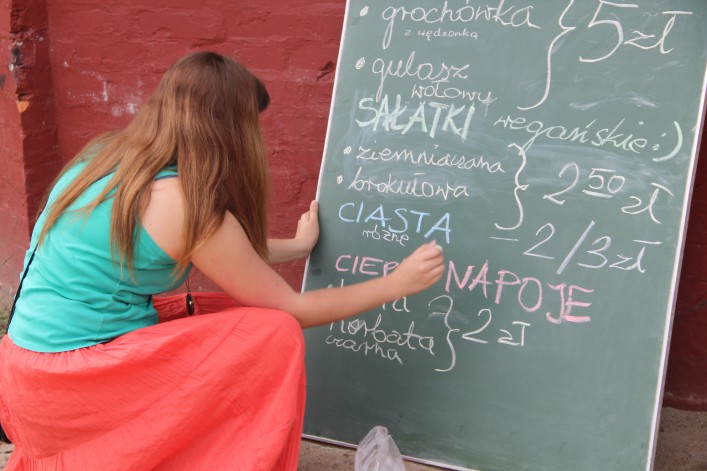 • grochówka } 5 zł
z wędzonką
• gulasz
wołowy
SAŁATKI wegańskie :)
• ziemniaczana
• brokułowa } 2 50 zł
CIASTA
różne – 2/3 zł
NAPOJE
herbata } 2 zł
czarna